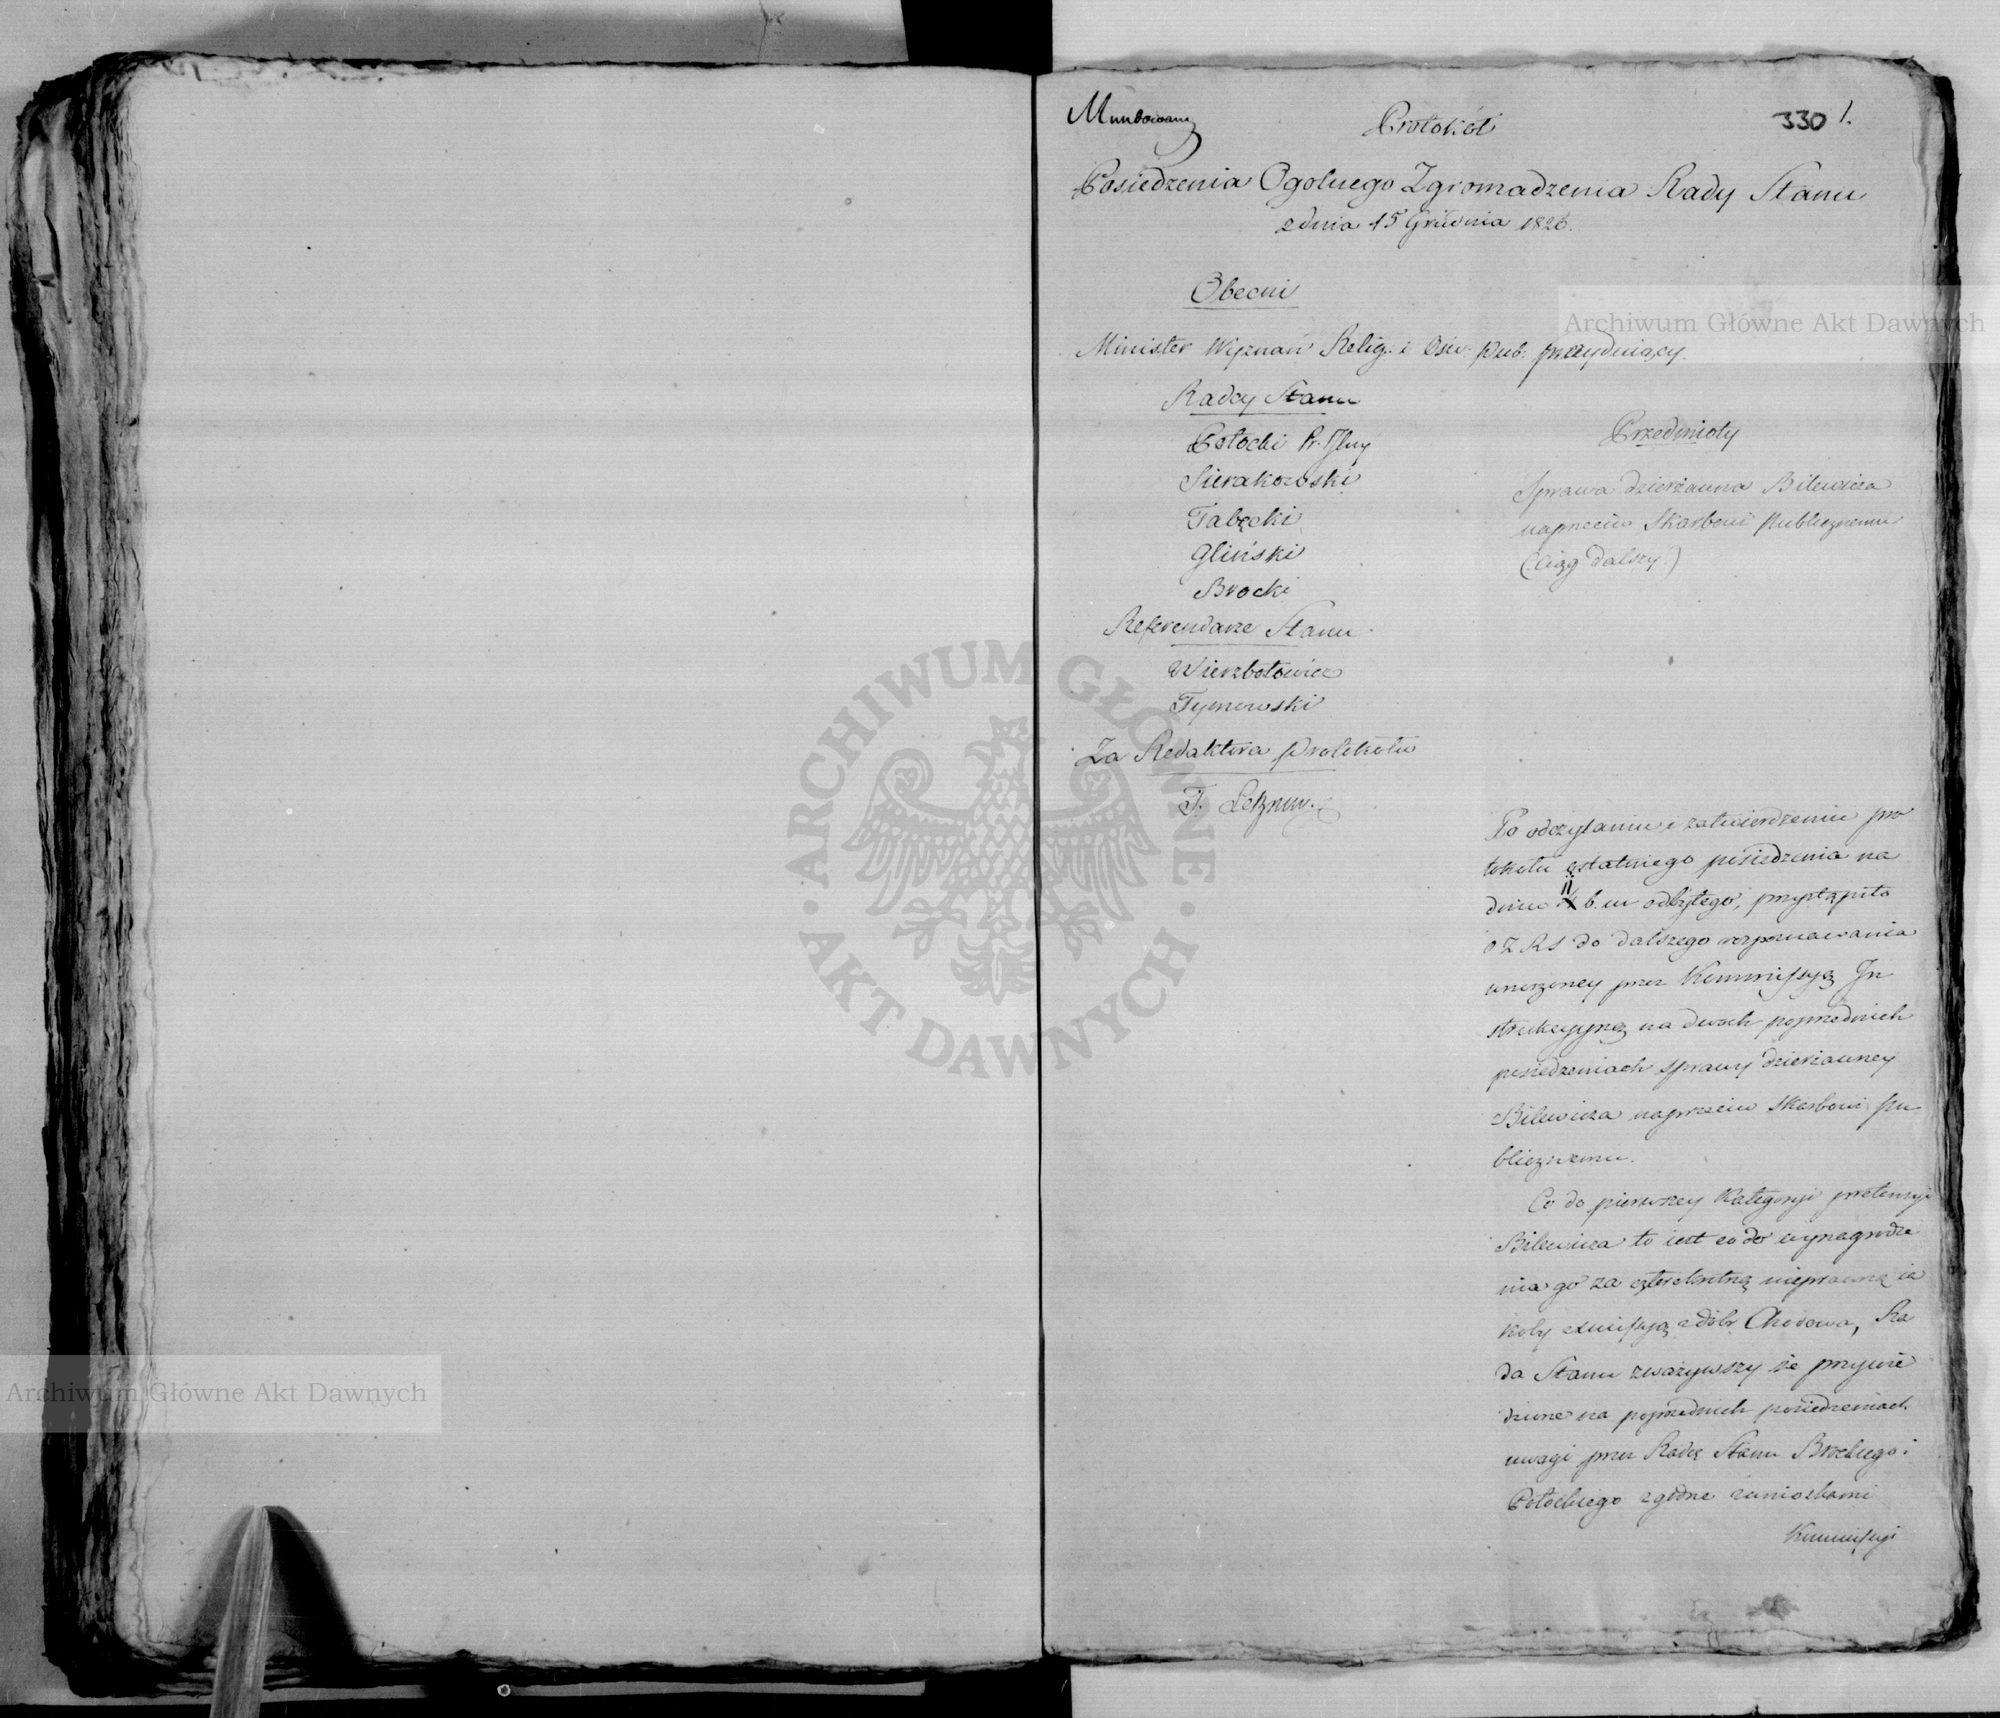 Mundowany
Protokół
330 1.
Posiedzenia Ogolnego Zgromadzenia Rady Stanu
z dnia 15 Grudnia 1826.
Obecni
Minister Wyznań Relig. i Ośw. Pub. prezyduiący.
Radcy Stanu
Potocki Pr.
Sierakowski
Tabęcki
Gliński
Brocki
Referendarze Stanu
Wierzbołowicz
Tymowski
Za Redaktora Protokołu
T.
Przedmioty
Sprawa dzierżawna Bilewicza
naprzeciw Skarbowi Publicznemu
(Ciąg dalszy)
Po odczytaniu i zatwierdzeniu pro
tokołu ostatniego posiedzenia na
dniu 11 b. m odbytego, przystąpiło
O Z R S do dalszego rozpoznawania
wnoszoney przez Kommissyą In
strukcyyną na dwóch poprzednich
posiedzeniach sprawy dzierżawney
Bilewicza naprzeciw Skarbowi Pu
blicznemu.
Co do pierwszey Kategoryi pretensyi
Bilewicza to iest co do wynagrodze
nia go za czterokrotną nieprawną ia
koby exmissyą z dóbr Chodowa, Ra
da Stanu zważywszy że przywie
dzione na poprzednich posiedzeniach
uwagi przez Radcę Stanu Brockiego i
Potockiego zgodne z wnioskami
Kommissyi
Archiwum Główne Akt Dawnych
Archiwum Główne Akt Dawnych
ARCHIWUM GŁÓWNE
AKT DAWNYCH